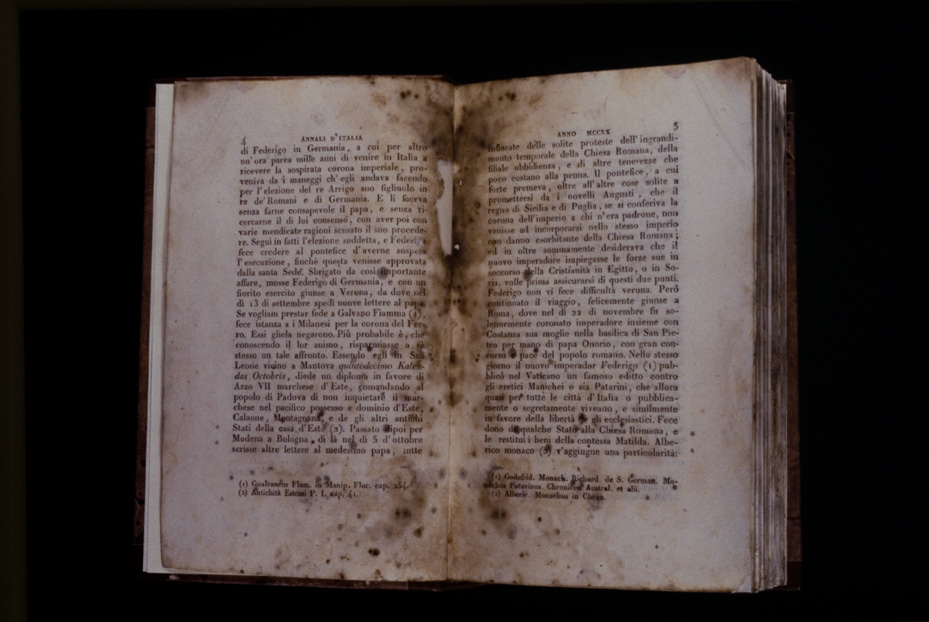 4
ANNALI D'ITALIA
di Federigo in Germania, a cui per altro
un'ora parea mille anni di venire in Italia a
ricevere la sospirata corona imperiale, pro-
veniva da i maneggi ch'egli andava facendo
per l'elezion del re Arrigo suo figliuolo in
re de' Romani e di Germania. E li faceva
senza farne consapevole il papa, e senza ri-
cercarne il di lui consenso, con aver poi con
varie mendicate ragioni scusato il suo procede-
re. Seguì in fatti l'elezione suddetta, e Federigo
fece credere al pontefice d'averne sospesa
l'esecuzione, finchè questa venisse approvata
dalla santa Sede. Sbrigato da così importante
affare, mosse Federigo di Germania, e con un
fiorito esercito giunse a Verona, da dove nel
dì 13 di settembre spedì nuove lettere al papa.
Se vogliam prestar fede a Galvano Fiamma (1),
fece istanza a i Milanesi per la corona del Fer-
ro. Essi gliela negarono. Più probabile è, che
conoscendo il lor animo, risparmiasse a sè
stesso un tale affronto. Essendo egli in San
Leone vicino a Mantova quintodecimo Kalen-
das Octobris, diede un diploma in favore di
Azzo VII marchese d'Este, comandando al
popolo di Padova di non inquietare il mar-
chese nel pacifico possesso e dominio d'Este,
Calaone, Montagnana, e de gli altri antichi
Stati della casa d'Este (2). Passato dipoi per
Modena a Bologna, di là nel dì 5 d'ottobre
scrisse altre lettere al medesimo papa, tutte
(1) Gualvaneus Flam. in Manip. Flor. cap.
(2) Antichità Estensi P. I. cap. 41.
5
ANNO MCCXX
infiorate delle solite proteste dell'ingrandi-
mento temporale della Chiesa Romana, della
filiale ubbidienza, e di altre tenerezze che
poco costano alla penna. Il pontefice, a cui
forte premeva, oltre all'altre cose solite a
promettersi da i novelli Augusti, che il
regno di Sicilia e di Puglia, se si conferiva la
corona dell'imperio a chi n'era padrone, non
venisse ad incorporarsi nello stesso imperio
con danno esorbitante della Chiesa Romana;
ed in oltre sommamente desiderava che il
nuovo imperador impiegasse le forze sue in
soccorso della Cristianità in Egitto, o in So-
ria, volle prima assicurarsi di questi due punti.
Federigo non vi fece difficultà veruna. Però
continuato il viaggio, felicemente giunse a
Roma, dove nel dì 22 di novembre fu so-
lennemente coronato imperadore insieme con
Costanza sua moglie nella basilica di San Pie-
tro per mano di papa Onorio, con gran con-
corso e pace del popolo romano. Nello stesso
giorno il nuovo imperador Federigo (1) pub-
blicò nel Vaticano un famoso editto contro
gli eretici Manichei e sia Patarini, che allora
quasi per tutte le città d'Italia o pubblica-
mente o segretamente viveano, e similmente
in favore della libertà de gli ecclesiastici. Fece
dono di qualche Stato alla Chiesa Romana, e
le restituì i beni della contessa Matilda. Albe-
rico monaco (2) v'aggiugne una particolarità:
(1) Godefrid. Monach. Richard. de S. German. Mo-
nachus Patavinus. Chronicon Austral. et alii.
(2) Alberic. Monachus in Chron.